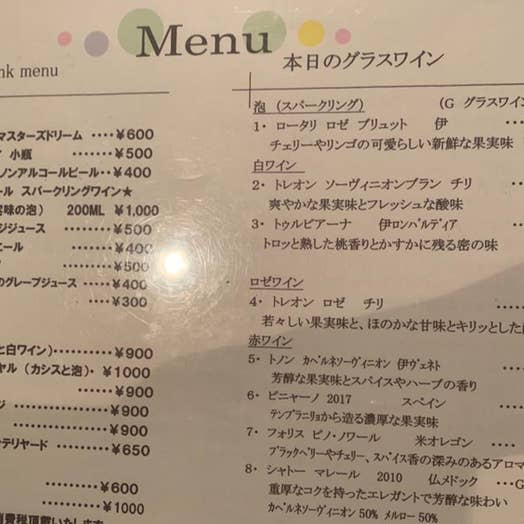 Menu
nk menu
マスターズドリーム ････¥600
小瓶 ･･････¥500
ノンアルコールビール･･¥400
ール スパークリングワイン★
実味の泡） 200ML ¥1,000
ジジュース ･･････¥500
エール ･･････¥400
･･････¥500
のグレープジュース ････¥400
････¥300
と白ワイン）････････¥900
ヤル（カシスと泡）･¥1000
･････････¥900
ジ ･････････¥900
･････････¥900
ンテリヤード ･････¥650
･･･････¥600
･･･････¥1000
消費税頂戴いたします
本日のグラスワイン
泡（スパークリング） （G グラスワイン
1・ ロータリ ロゼ ブリュット 伊
チェリーやリンゴの可愛らしい新鮮な果実味
白ワイン
2・ トレオン ソーヴィニオンブラン チリ
爽やかな果実味とフレッシュな酸味
3・ トゥルビアーナ 伊ロンバルディア
トロッと熟した桃香りとかすかに残る密の味
ロゼワイン
4・ トレオン ロゼ チリ
若々しい果実味と、ほのかな甘味とキリッとした
赤ワイン
5・ トノン カベルネソーヴィニオン 伊ヴェネト
芳醇な果実味とスパイスやハーブの香り
6・ ビニャーノ 2017 スペイン
テンプラニョから造る濃厚な果実味
7・ フォリス ピノ・ノワール 米オレゴン
ブラックベリーやチェリー、スパイス香の深みのあるアロマ
8・ シャトー マレール 2010 仏メドック ･･･G
重厚なコクを持ったエレガントで芳醇な味わい
カベルネソーヴィニオン50% メルロー50%